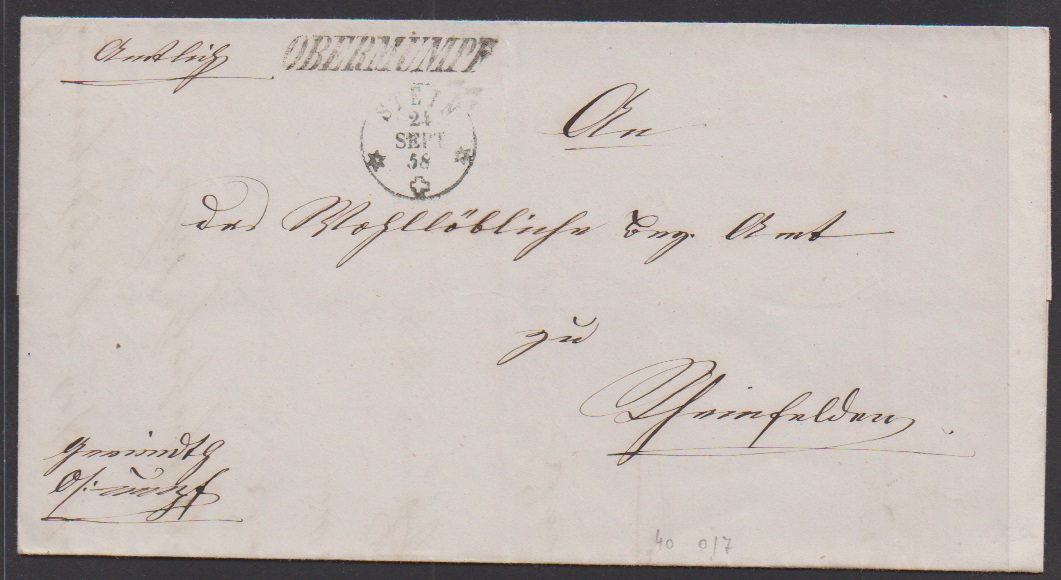 Amtlich
OBERMUMPF
STEIN
24
SEPT
58
An
das Wohllöbliche Bez. Amt
zu
Rheinfelden.
O/:mumpf
40 0/7